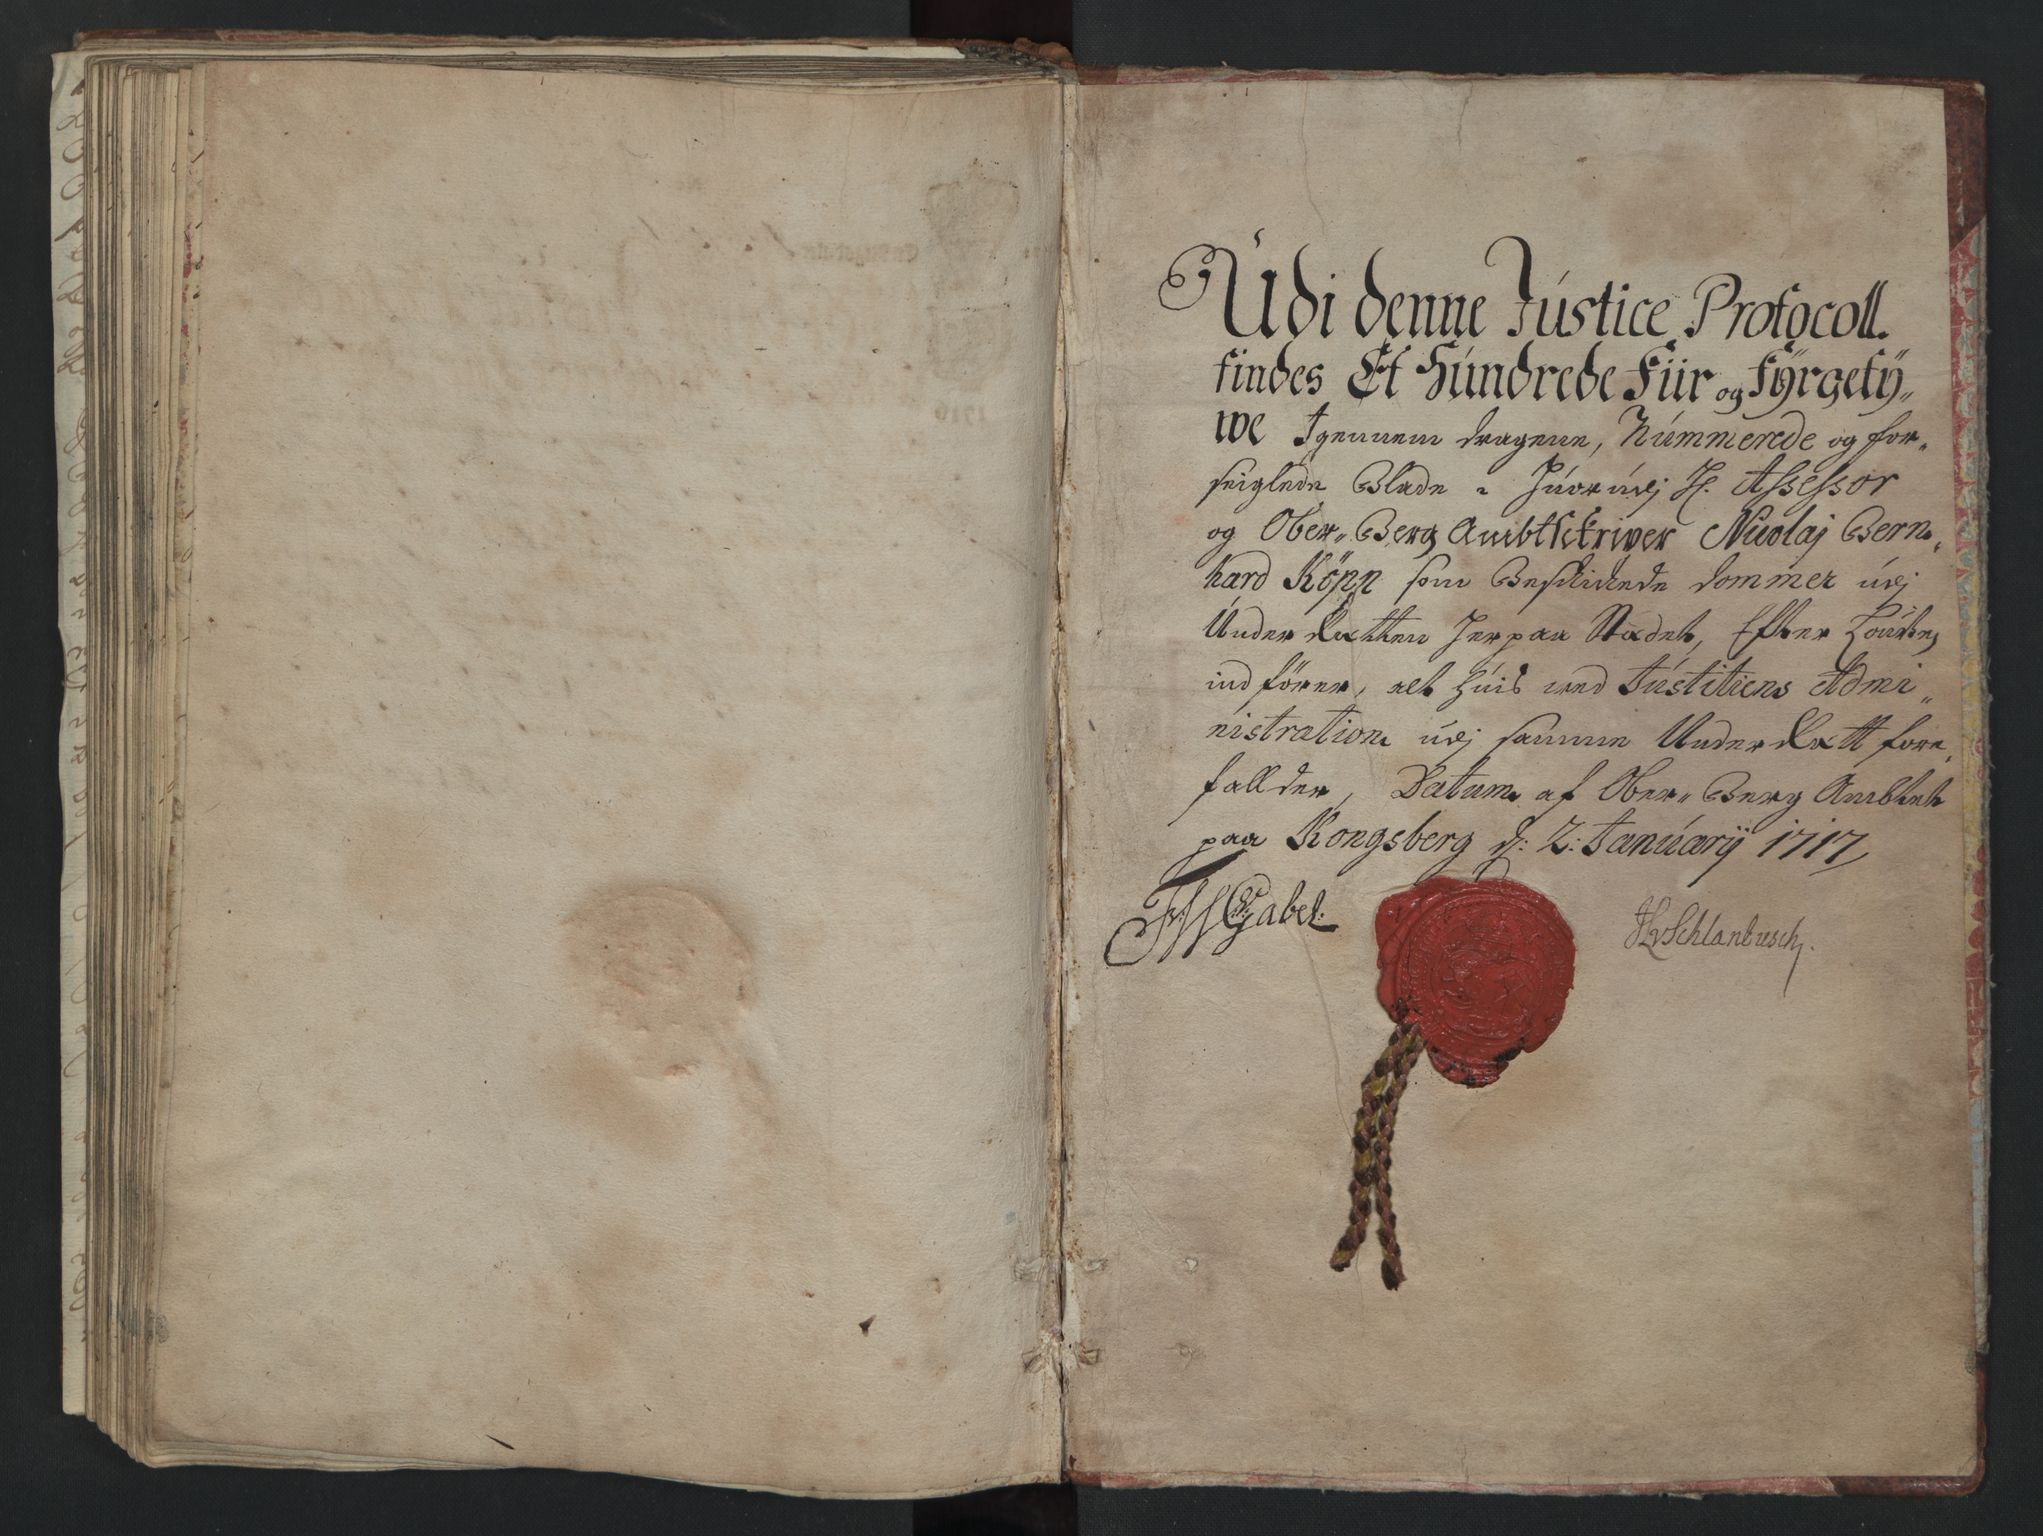 Udi denne Jústice Protocoll.
findes Et Húndrede Fiir og Fÿrgetÿ„
we Igennem dragene, Númmerede og for„
seiglede Blade, Húorúdj H. Assessor
og Ober„Berg Ambtskriver Nicolaj Bern„
hard Köpp som Beskickede dommer údj
Under Rætten Herpaa Stædet, Efter
indfører, alt húis ved Jústitiens Admi„
nistration údj samme Under Rætt fore„
fallder, Datum af Ober„Berg Ambtet
paa Kongsberg d: 2: Janúarÿ 1717
Gabel.
HvSchlanbusch.
1716